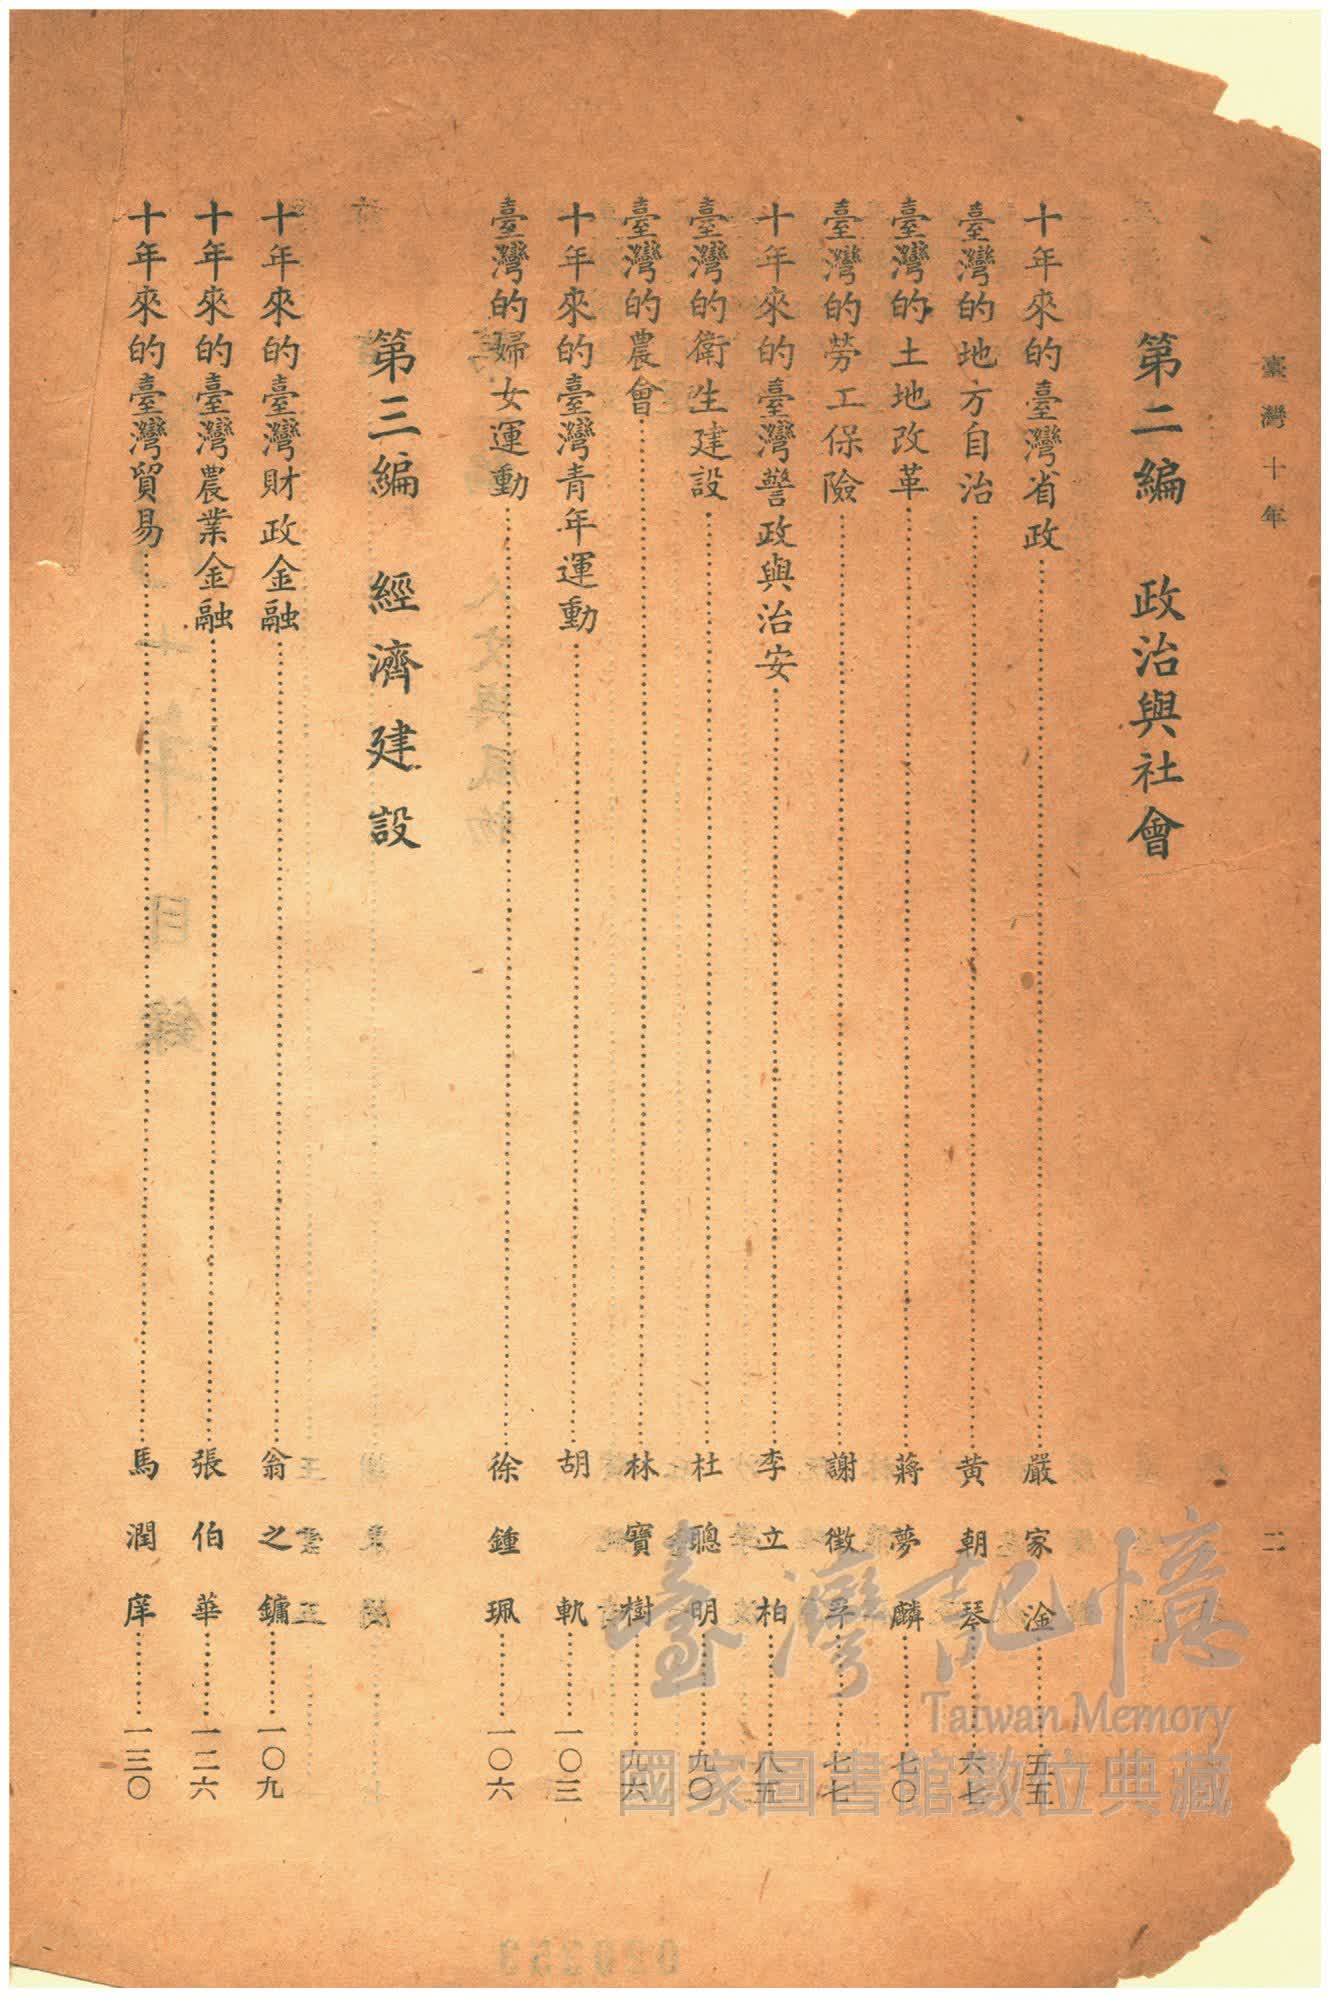 臺灣十年
二
第二編　政治與社會
十年來的臺灣省政……嚴家淦……五五
臺灣的地方自治……黃朝琴……六七
臺灣的土地改革……蔣夢麟……七〇
臺灣的勞工保險……謝徵孚……七七
十年來的臺灣警政與治安……李立柏……八五
臺灣的衛生建設……杜聰明……九〇
臺灣的農會……林寶樹……九六
十年來的臺灣青年運動……胡軌……一〇三
臺灣的婦女運動……徐鍾珮……一〇六
第三編　經濟建設
十年來的臺灣財政金融……翁之鏞……一〇九
十年來的臺灣農業金融……張伯華……一二六
十年來的臺灣貿易……馬潤庠……一三〇
臺灣記憶
Taiwan Memory
國家圖書館數位典藏